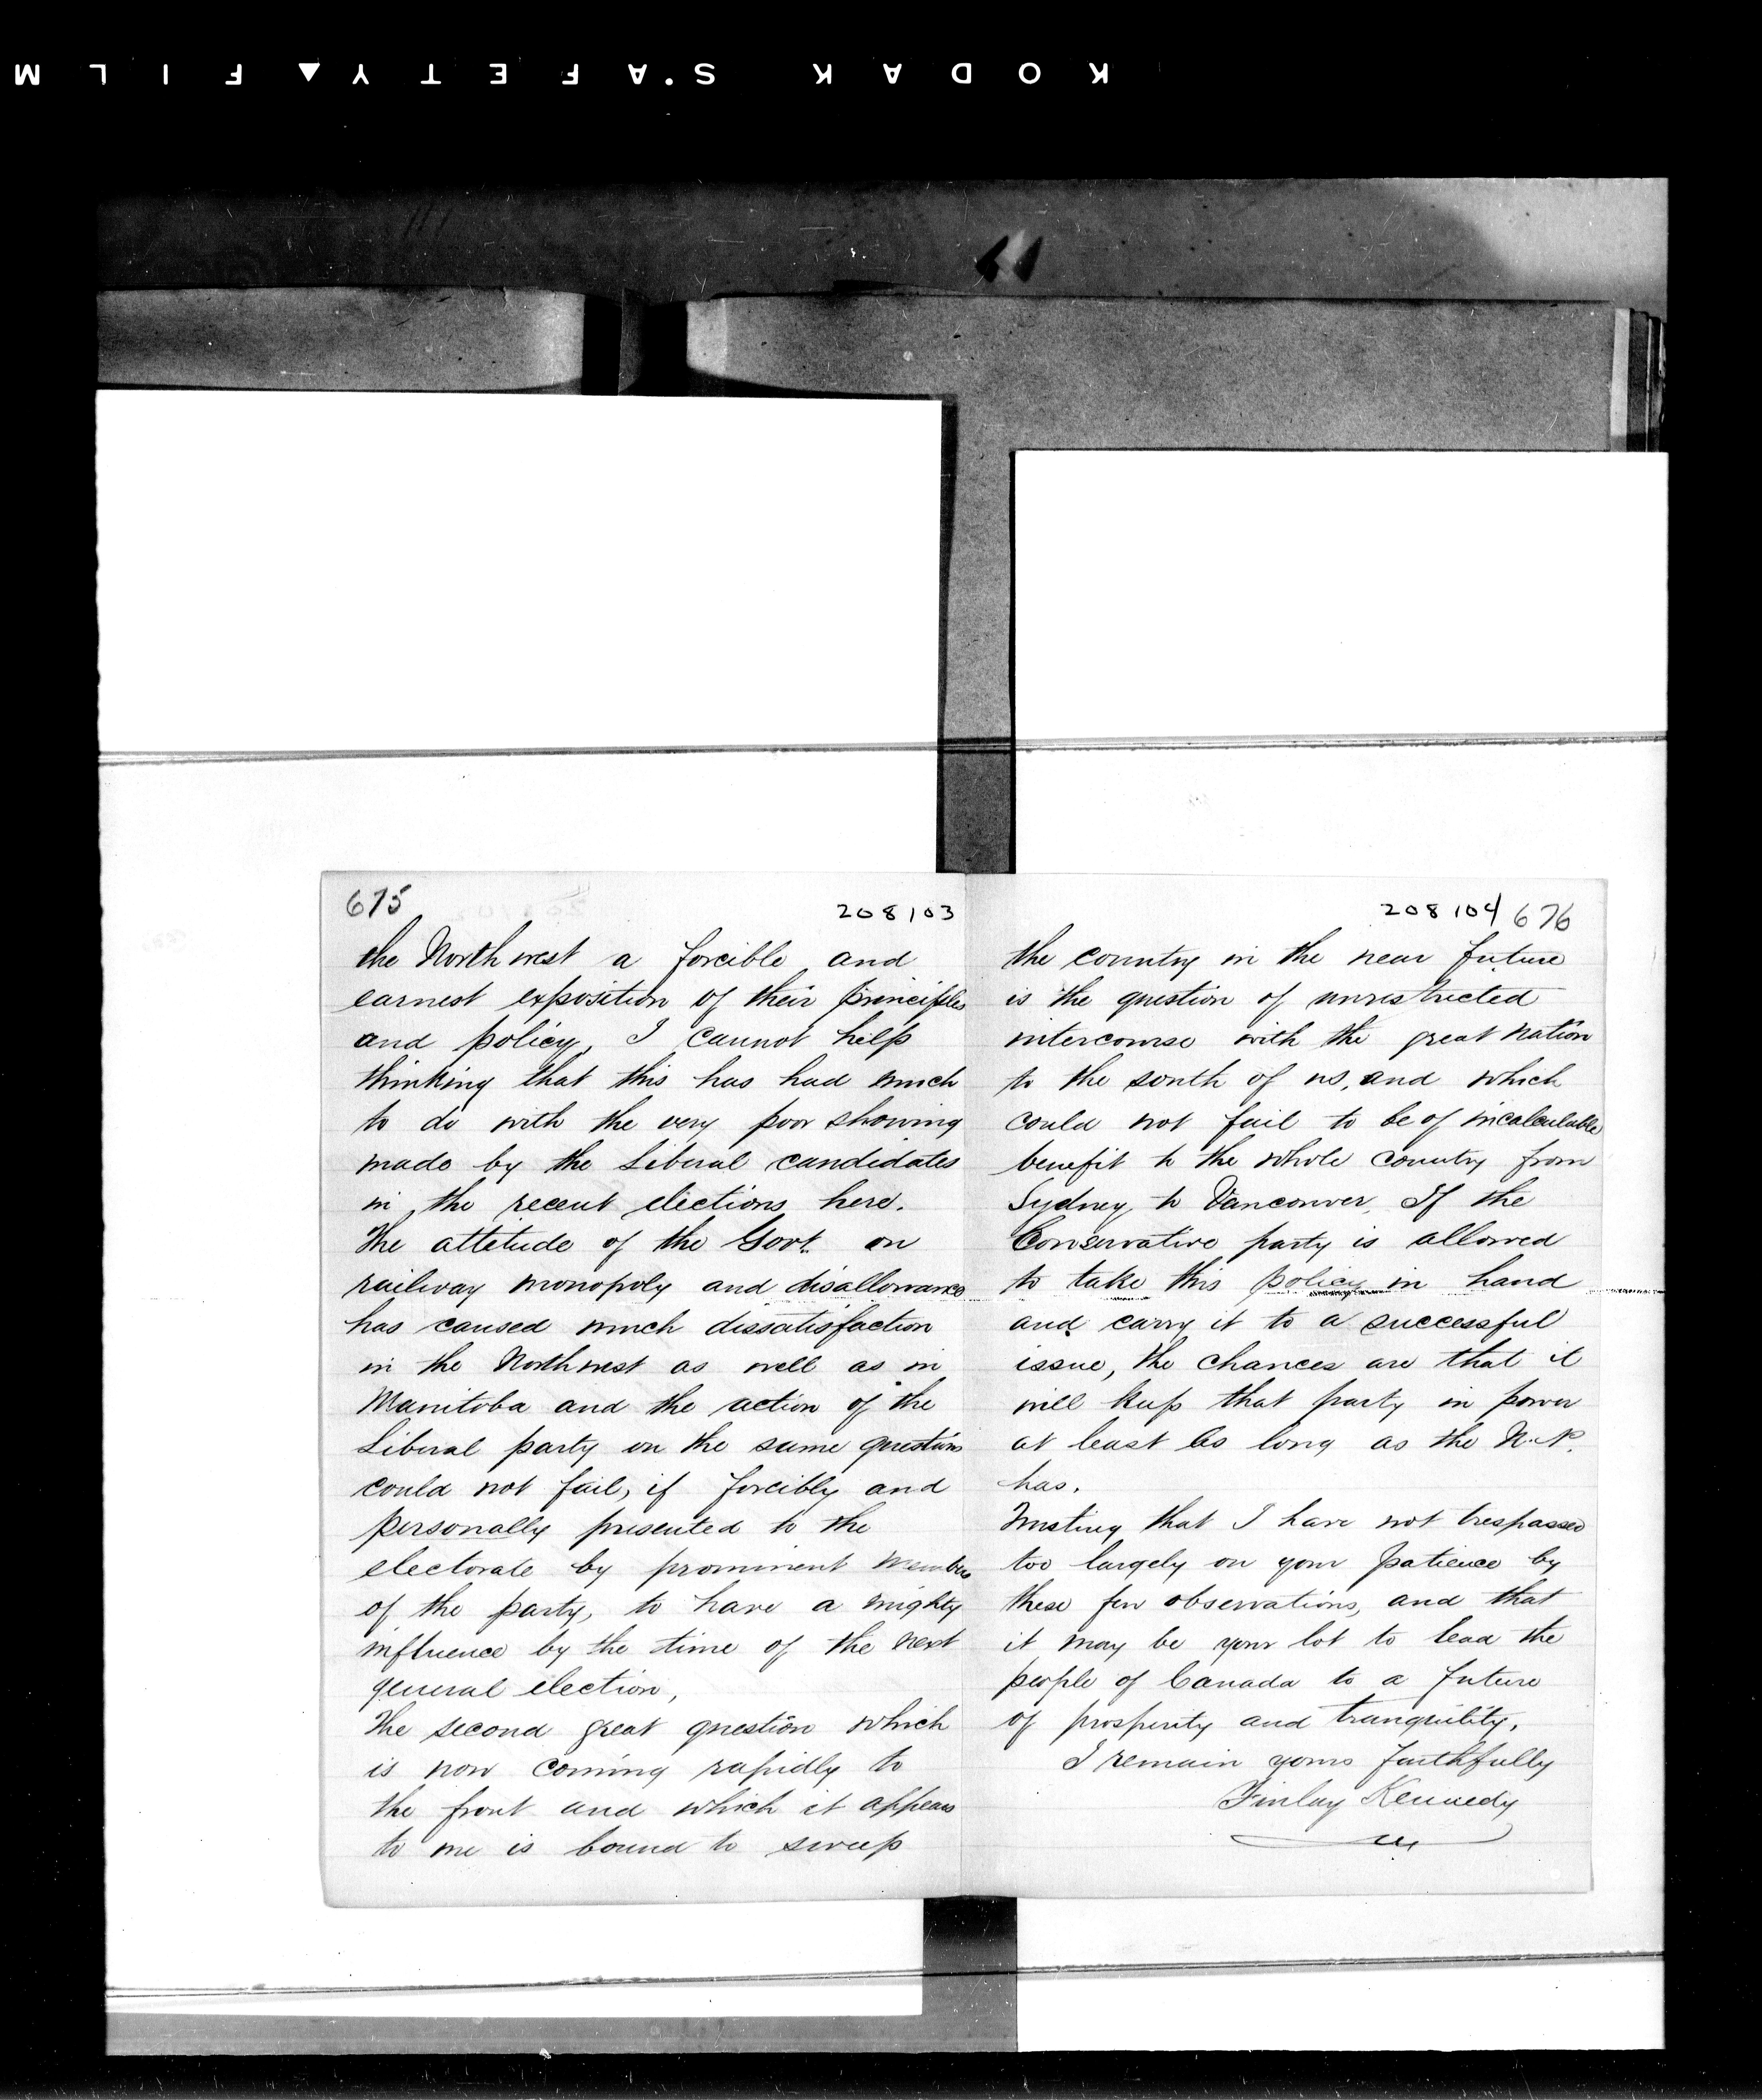 KODAK S'AFETY▲FILM
675
208103
the North west a forcible and
earnest exposition of their principles
and policy, I cannot help
thinking that this has had much
to do with the very poor showing
made by the Liberal candidates
in the recent elections here.
The attetude of the Govt. on
railway monopoly and disallowance
has caused much dissatisfaction
in the North west as well as in
Manitoba and the action of the
Liberal party on the same question
could not fail, if forcibly and
personally presented to the
electorate by prominent members
of the party, to have a mighty
influence by the time of the next
general election,
The second great question which
is now coming rapidly to
the front and which it appears
to me is bound to sweep
208104 676
the country in the near future
is the question of unrestricted
intercourse with the great nation
to the south of us, and which
could not fail to be of incalculable
benefit to the whole country from
Sydney to Vancouver, If the
Conservative party is allowed
to take this policy in hand
and carry it to a successful
issue, the chances are that it
will keep that party in power
at least as long as the N.P.
has.
Trusting that I have not trespassed
too largely on your patience by
these few observations, and that
it may be your lot to lead the
people of Canada to a future
of prosperity and tranquility,
I remain yours faithfully
Finlay Kennedy